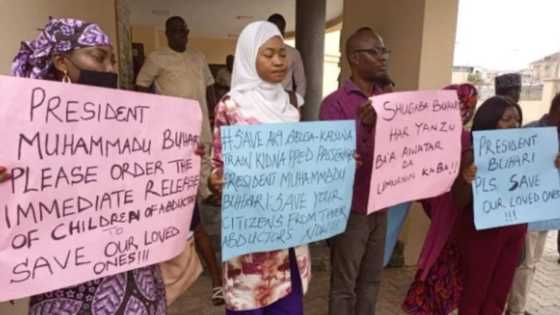 PRESIDENT
MUHAMMADU BUHARI
PLEASE ORDER THE
IMMEDIATE RELEASE
OF CHILDREN OF ABDUCTORS
TO
SAVE OUR LOVED
ONES!!!
#SAVE AK9 ABUJA-KADUNA
TRAIN KIDNAPPED PASSENGERS
PRESIDENT MUHAMMADU
BUHARI: SAVE YOUR
CITIZENS FROM THEIR
ABDUCTORS NOW!!!
SHUGABA BUHARI
HAR YANZU
BA'A
DA
BA!!
PRESIDENT
BUHARI
PLS. SAVE
OUR LOVED ONES
!!!